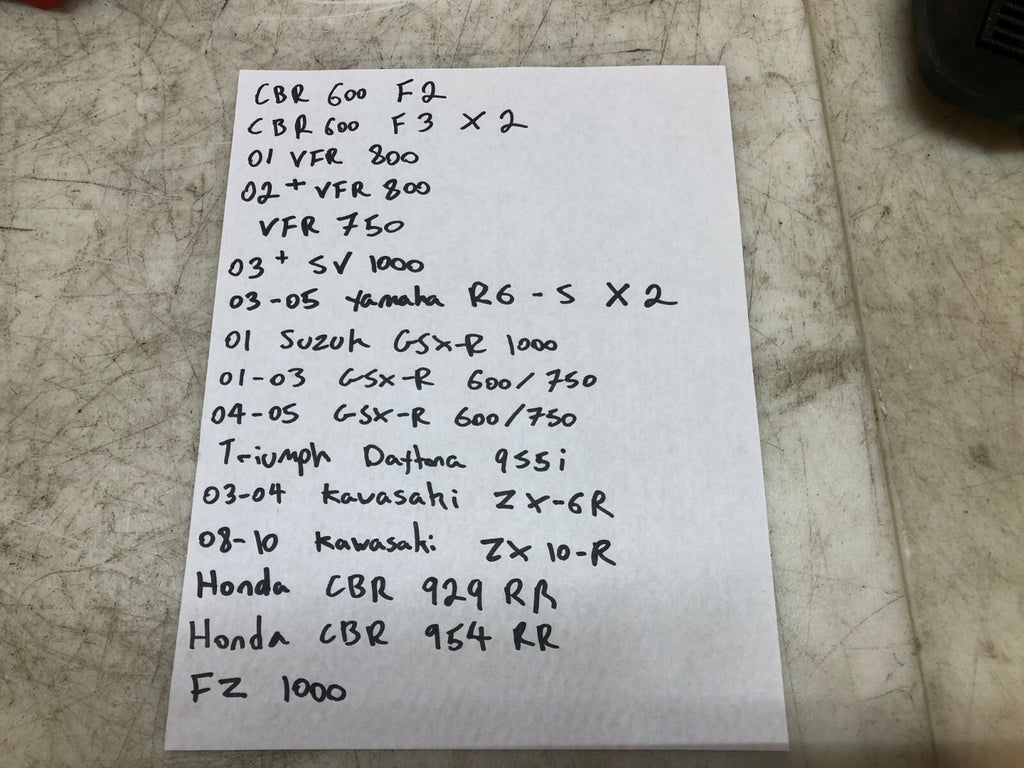 CBR 600 F2
CBR 600 F3 X 2
01 VFR 800
02+ VFR 800
VFR 750
03+ SV 1000
03-05 Yamaha R6-S X 2
01 Suzuk GSX-R 1000
01-03 GSX-R 600/750
04-05 GSX-R 600/750
Triumph Daytona 955i
03-04 Kavasaki ZX-6R
08-10 Kawasaki ZX 10-R
Honda CBR 929 RR
Honda CBR 954 RR
FZ 1000